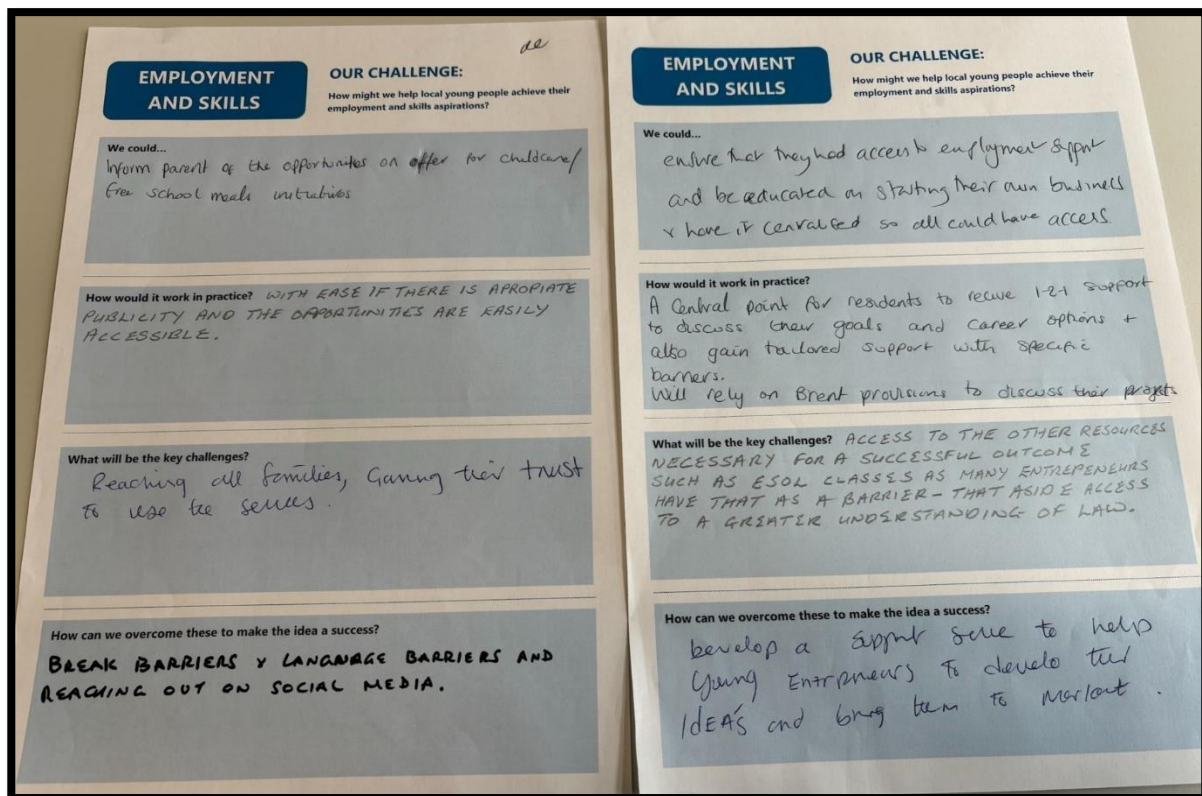 EMPLOYMENT
AND SKILLS
OUR CHALLENGE:
How might we help local young people achieve their
employment and skills aspirations?
We could...
Inform parent of the opportunities on offer for childcare/
free school meals
How would it work in practice? WITH EASE IF THERE IS APROPIATE
PUBLICITY AND THE OPPORTUNITIES ARE EASILY
ACCESSIBLE.
What will be the key challenges?
Reaching all families, Gaining their trust
to use the
How can we overcome these to make the idea a success?
BREAK BARRIERS & LANGUAGE BARRIERS AND
REACHING OUT ON SOCIAL MEDIA.
EMPLOYMENT
AND SKILLS
OUR CHALLENGE:
How might we help local young people achieve their
employment and skills aspirations?
We could...
ensure that they had access to employment support
and be educated on starting their own business
& have it so all could have access
How would it work in practice?
A Central point for residents to receive 1-2-1 support
to discuss their goals and career options +
also gain tailored support with specific
barriers.
Will rely on Brent provisions to discuss their
What will be the key challenges? ACCESS TO THE OTHER RESOURCES
NECESSARY FOR A SUCCESSFUL OUTCOME
SUCH AS ESOL CLASSES AS MANY ENTREPENEURS
HAVE THAT AS A BARRIER - THAT ASIDE ACCESS
TO A GREATER UNDERSTANDING OF LAW.
How can we overcome these to make the idea a success?
Develop a support to help
Young Entrpneurs to develo their
IDEA'S and bring them to market.